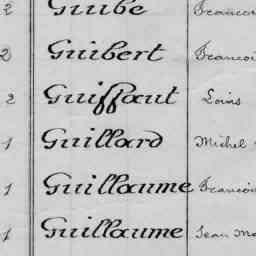 2 Guibé
2 Guibert Francois
2 Guiffaut Louis
1 Guillard Michel
1 Guillaume Francois
1 Guillaume Jean Ma